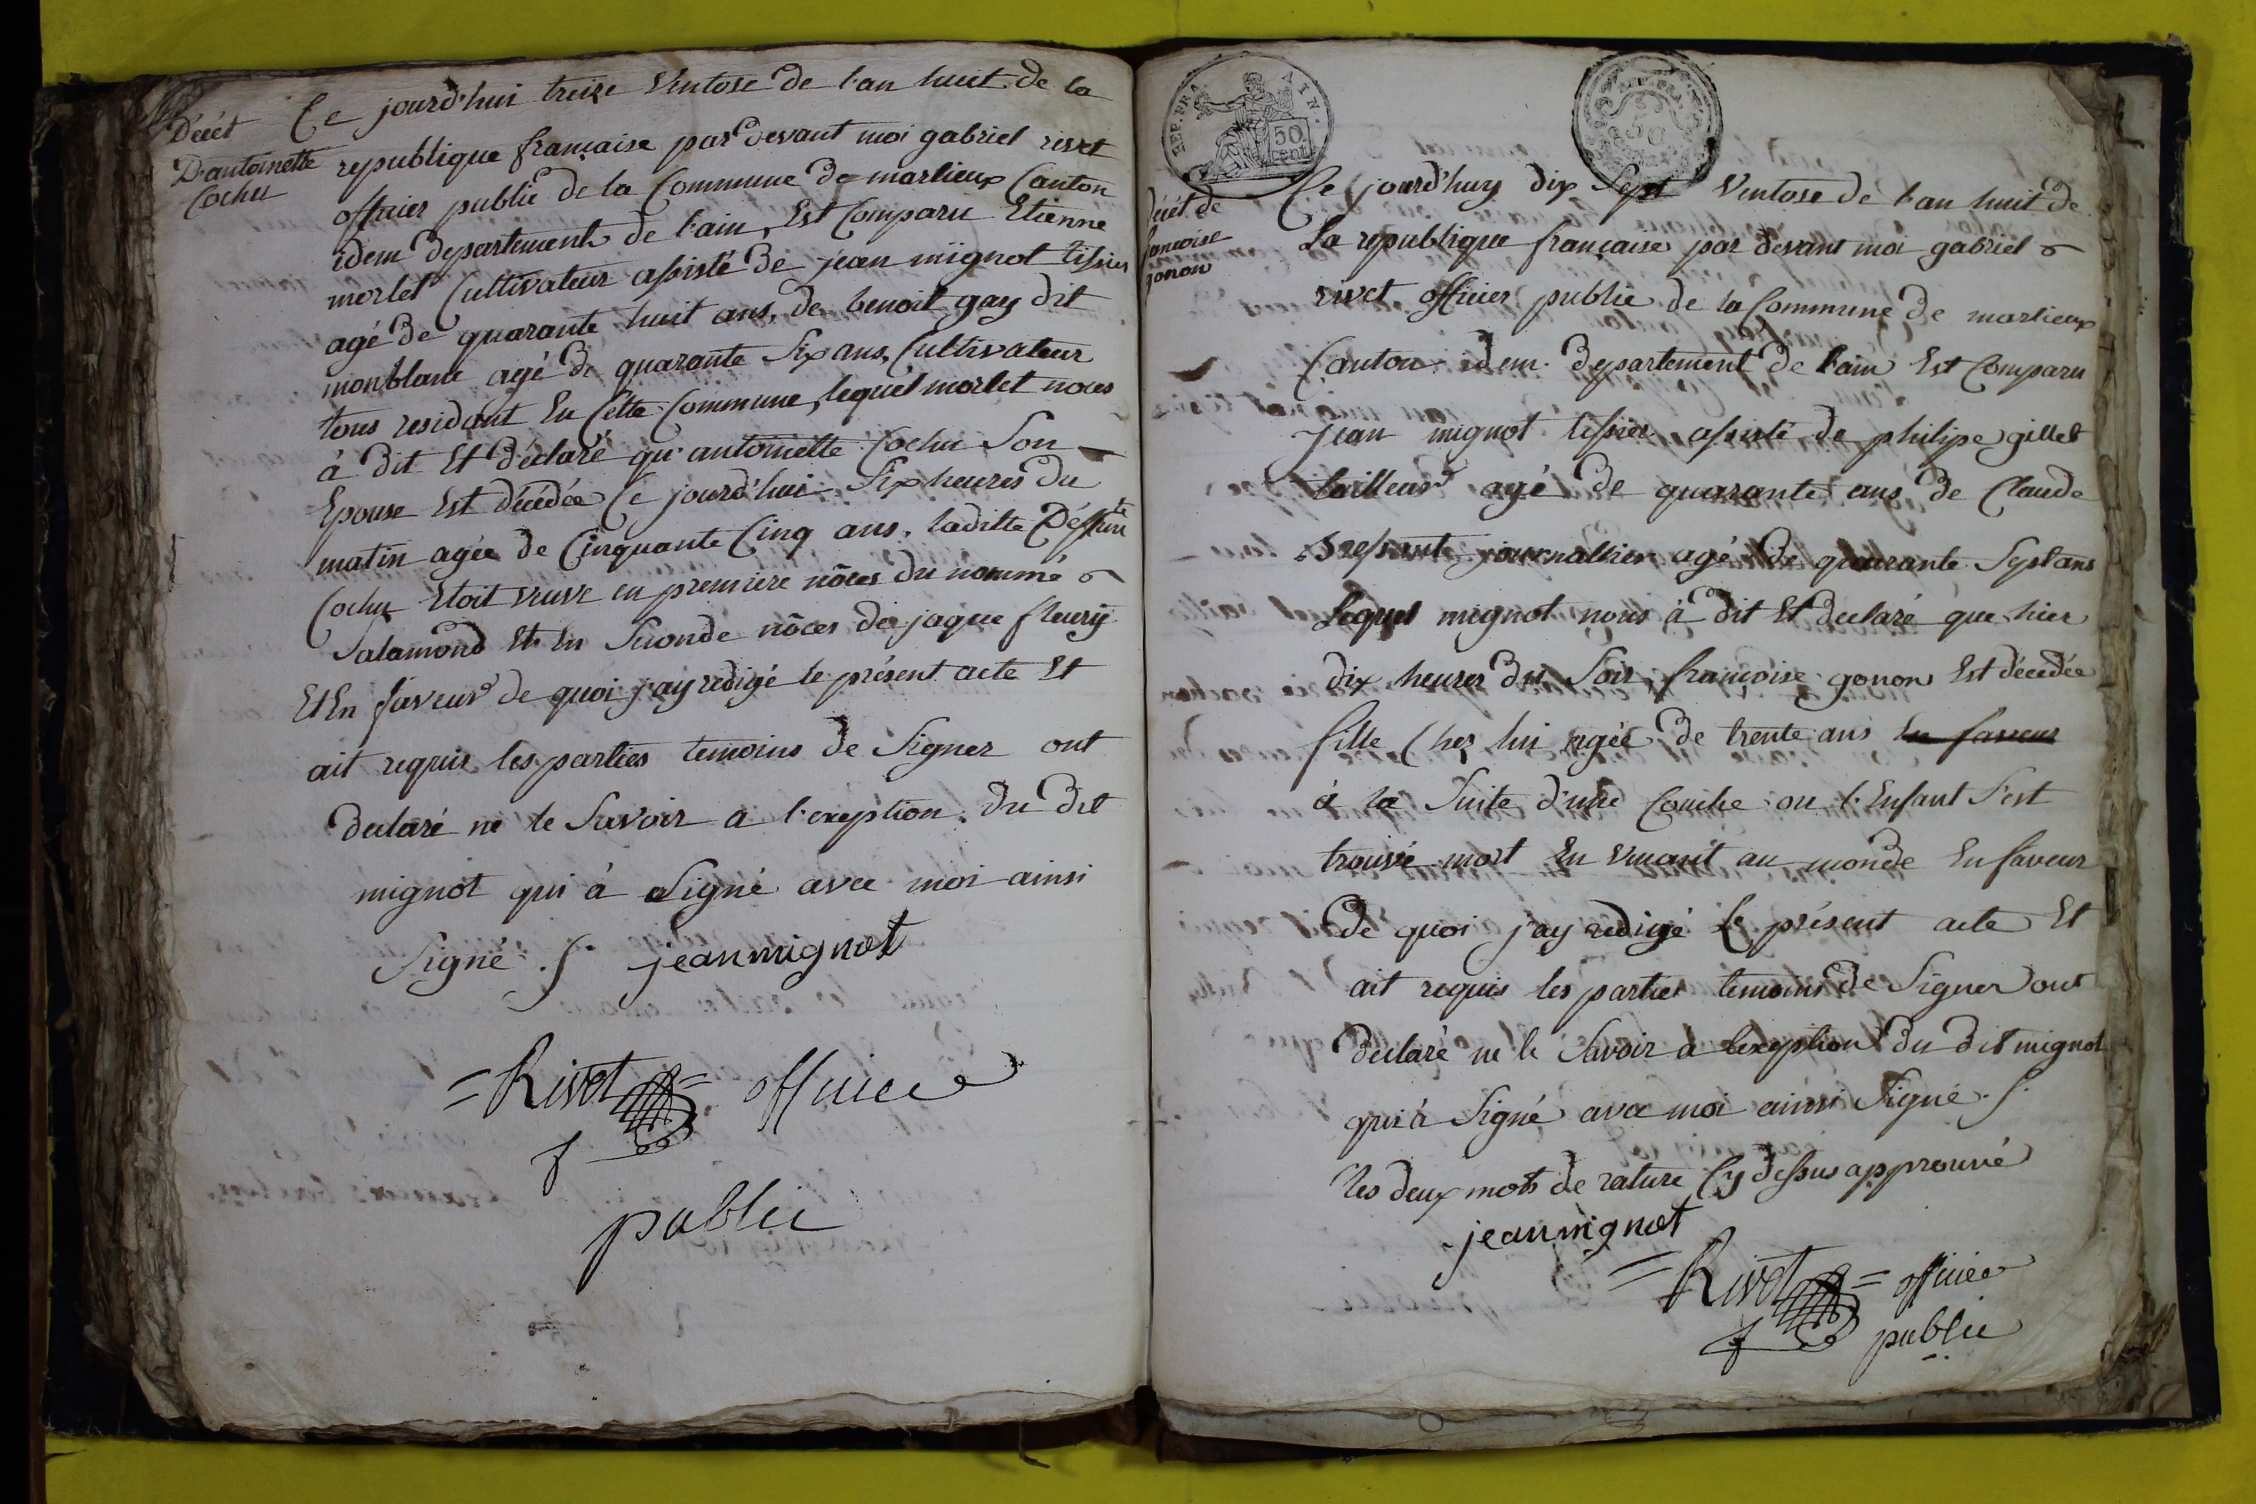 Décét
D'antoinette
Cochu
Ce jourd'hui treize Ventose de l'an huit de la
republique française par devant moi gabriel rivet
officier public de la Commune de marlieux Canton
idem departement de l'ain, Est Comparu Etienne
morlet Cultivateur assisté de jean mignot tissier
agé de quarante huit ans, de benoit gay dit
monblanc agé de quarante Six ans, Cultivateur
tous residant En Cette Commune, lequel morlet nous
à dit Et déclaré qu'antoinette Cochu Son
Epouse Est décédée Ce jourd'hui Six heures du
matin agée de Cinquante Cinq ans, laditte Deffunte
Cochu Etoit veuve en premiere nôces du nommé
Salamond Et En Seconde nôces de jaque fleury
Et En faveur de quoi j'ay redigé le présent acte Et
ait requis les parties temoins de Signer ont
declaré ne le Savoir a l'exeption du dit
mignot qui à Signé avec moi ainsi
Signé ./.
jean mignot
=Rivet= officier
public
REP. FRA. AIN.
50 cent.
50
décét de
francoise
gonon
Ce jourd'huy dix Sept Ventose de l'an huit de
La republique française par devant moi gabriel
rivet officier public de la Commune de marlieux
Canton idem departement de l'ain Est Comparu
Jean mignot tissier assisté de philipe gillet
tailleur agé de quarante ans de Claude
journallier agé de quarante Sept ans
Lequel mignot nous à dit Et declaré que hier
dix heures du Soir francoise gonon Est décédée
fille Chez lui agée de trente ans En faveur
à la Suite d'une Couche ou l'Enfant S'est
trouvé mort En venant au monde En faveur
de quoi j'ay redigé le présent acte Et
ait requis les parties temoins de Signer ont
declaré ne le Savoir a lexeption du dit mignot
qui à Signé avec moi ainsi Signé ./.
les deux mots de rature Cy dessus approuvé
jean mignot
=Rivet= officier
public